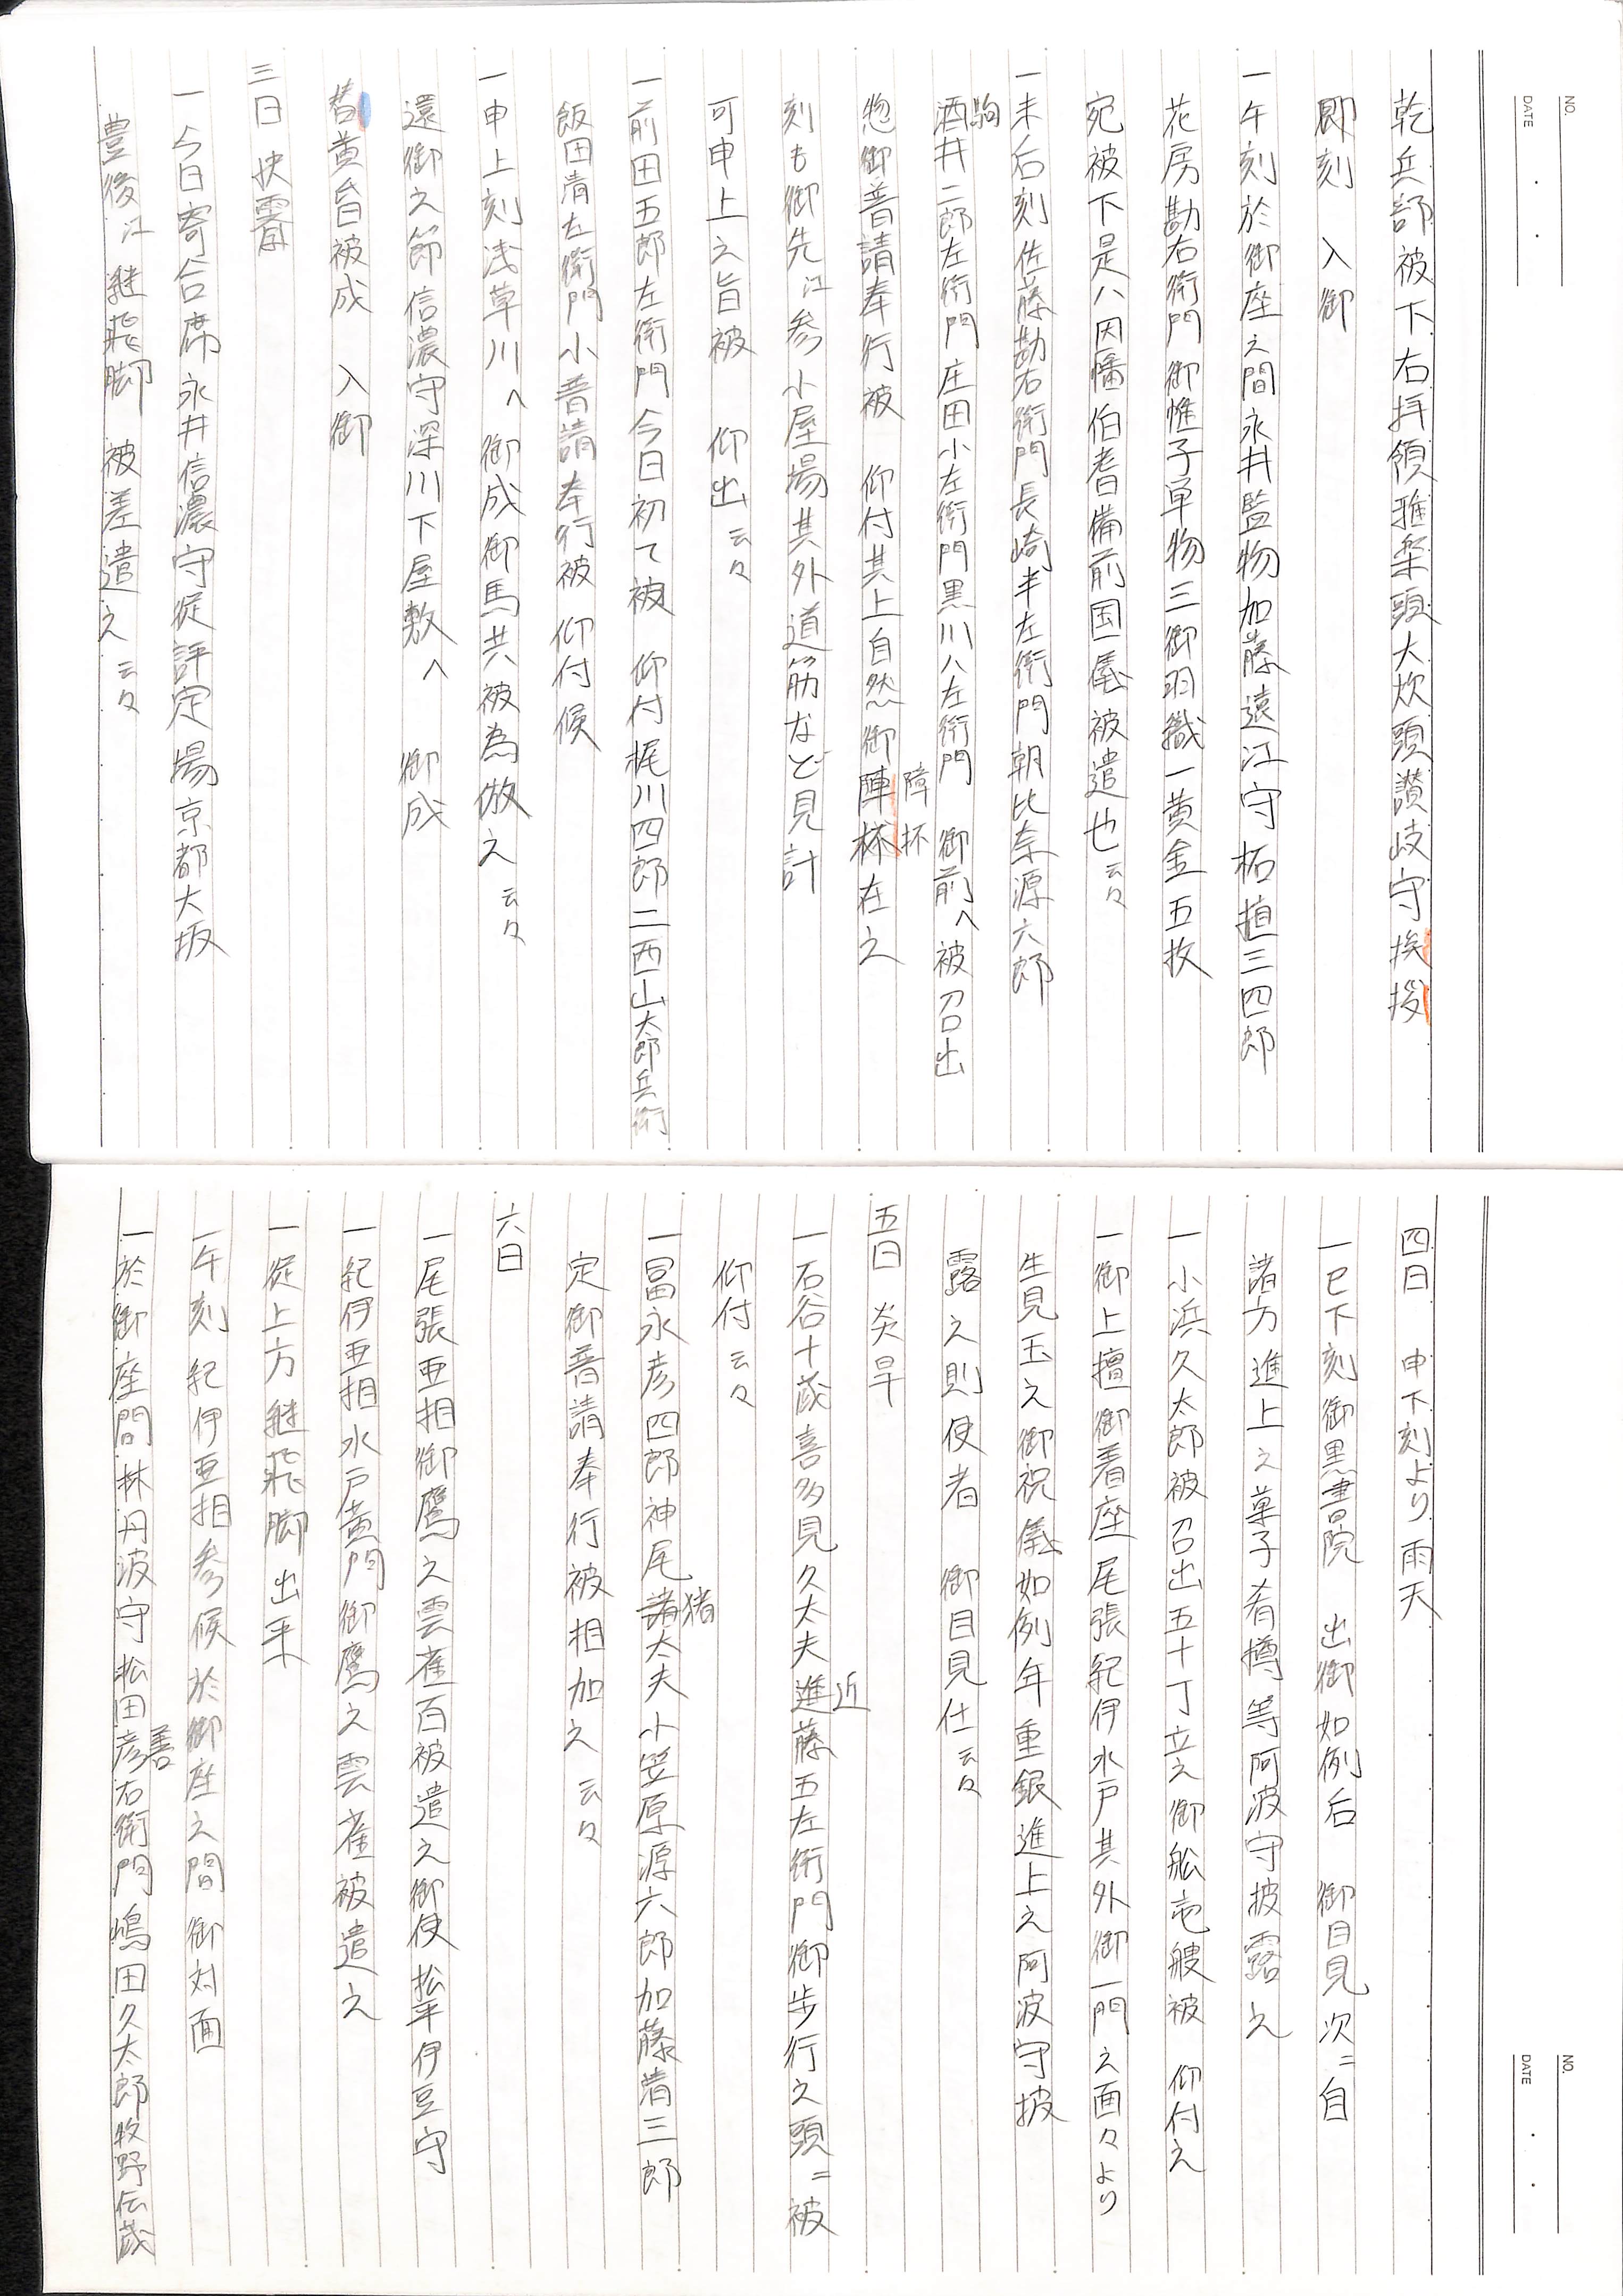 NO.
DATE
乾兵部被下右拝領雅楽頭大炊頭讃岐守挨拶
即刻　入御
一午刻於御座之間永井監物加藤遠江守柘植三四郎
花房勘右衛門御帷子単物三御羽織一黄金五枚
宛被下是ハ因幡伯耆備前国廻被遣也云々
一未后刻佐藤勘右衛門長崎半左衛門朝比奈源六郎
駒
酒井二郎左衛門庄田小左衛門黒川八左衛門　御前へ被召出
障坏
惣御普請奉行被　仰付其上自然御陣杯在之
刻も御先江参小屋場其外道筋など見計
可申上之旨被　仰出云々
一前田五郎左衛門今日初て被　仰付梶川四郎二西山太郎兵衛
飯田清左衛門小普請奉行被　仰付候
一申上刻浅草川へ　御成御馬共被為倣之云々
還御之節信濃守深川下屋敷へ　御成
黄昏被成　入御
三日　快霽
一今日寄合席永井信濃守従評定場京都大坂
豊後江継飛脚　被差遣之云々
NO.
DATE
四日　申下刻より雨天
一巳下刻御黒書院　出御如例后　御目見次ニ自
諸方進上之菓子肴樽等阿波守披露之
一小浜久太郎被召出五十丁立之御舩壱艘被　仰付之
一御上檀御着座尾張紀伊水戸其外御一門之面々より
生見玉之御祝儀如例年重銀進上之阿波守披
露之則使者　御目見仕云々
五日　炎旱
近
一石谷十蔵喜多見久太夫進藤五左衛門御歩行之頭ニ被
仰付云々
猪
一冨永彦四郎神尾諸太夫小笠原源六郎加藤清三郎
定御普請奉行被相加之云々
六日
一尾張亜相御鷹之雲雀百被遣之御使松平伊豆守
一紀伊亜相水戸黄門御鷹之雲雀被遣之
一従上方継飛脚出来
一午刻紀伊亜相参候於御座之間御対面
善
一於御座間林丹波守松田彦右衛門嶋田久太郎牧野伝蔵